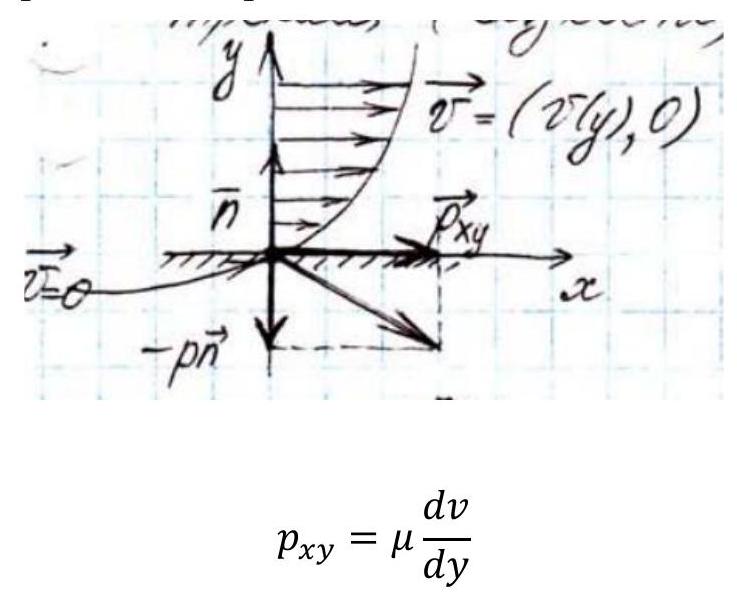 y
v⃗ = (v(y), 0)
n̅
p⃗xy
v⃗=0
x
-pn⃗
pxy = μ dv/dy